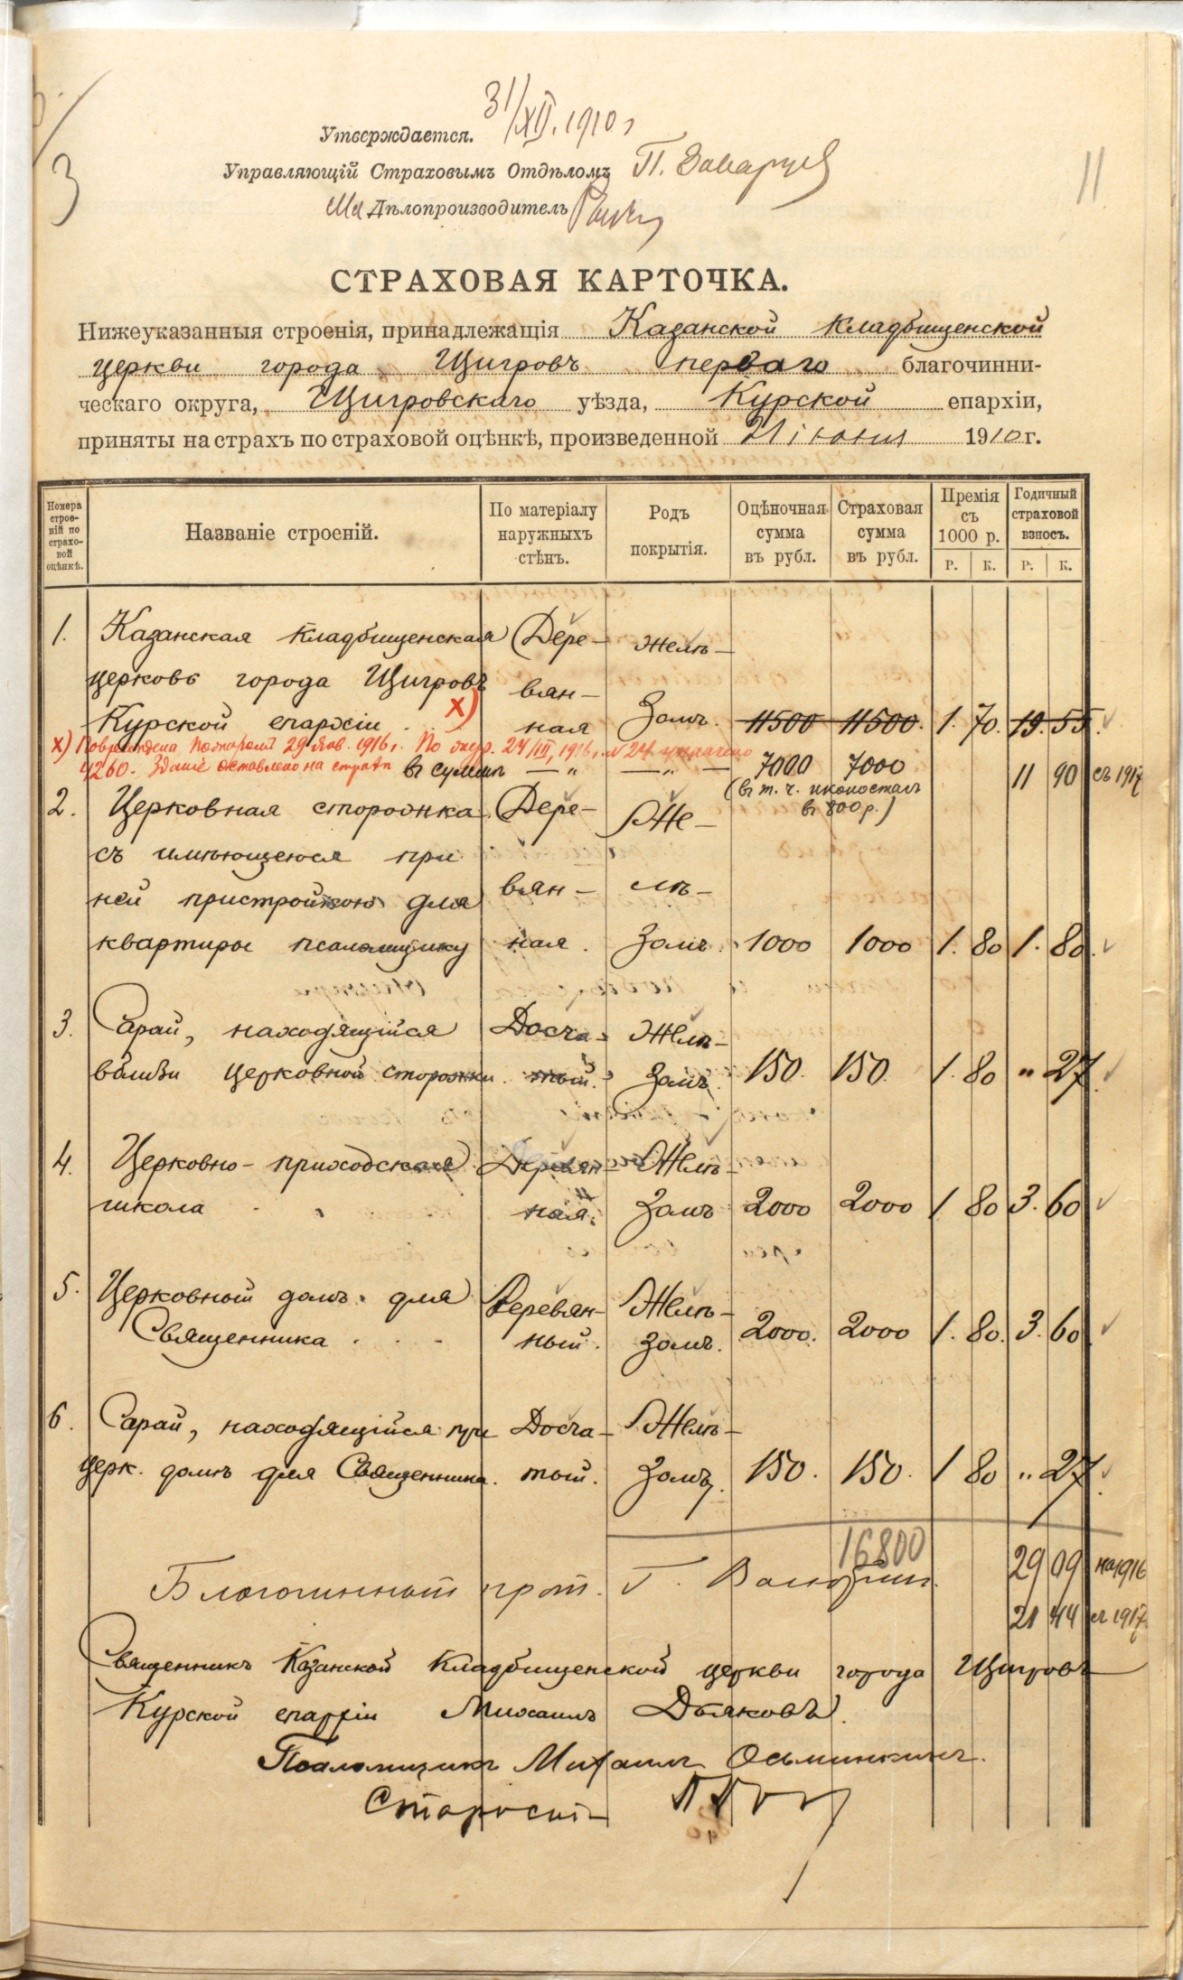 3
11
31/XII. 1910 г
Утверждается.
Управляющій Страховымъ Отдѣломъ П.
Дѣлопроизводитель
СТРАХОВАЯ КАРТОЧКА.
Нижеуказанныя строенія, принадлежащія Казанской Кладбищенской
церкви города Щигровъ перваго благочинни-
ческаго округа, Щигровскаго уѣзда, Курской епархіи,
приняты на страхъ по страховой оцѣнкѣ, произведенной 21 іюня 1910 г.
Номера строе-ній по страхо-вой оцѣнкѣ. Названіе строеній. По матеріалу наружныхъ стѣнъ. Родъ покрытія. Оцѣночная сумма въ рубл. Страховая сумма въ рубл. Премія съ 1000 р. Годичный страховой взносъ.
Р. К. Р. К.
1. Казанская Кладбищенская Дере- желѣ-
церковь города Щигровъ вян-
Курской епархіи х) ная зомъ. 11500 11500. 1. 70. 19. 55
х) Повреждена пожаромъ 29 янв. 1916 г. По 24/III, 1916 г. № 24 уплачено
4260. Зданіе оставлено на страхѣ въ суммѣ — „ — „ — 7000 7000 11 90 съ 1917
(въ т. ч. иконостасъ
въ 800 р.)
2. Церковная сторожка Дере- Же-
съ имѣющеюся при
ней пристройкою для вян- лѣ-
квартиры псаломщику ная. зомъ. 1000 1000 1. 80 1. 80.
3. Сарай, находящійся Досча- Желѣ-
вблизи церковной сторожки тый. зомъ. 150. 150. 1. 80 „ 27
4. Церковно-приходская Деревян- Желѣ-
школа ная. зомъ 2000 2000 1 80 3. 60
5. Церковный домъ для Деревян- Желѣ-
Священника ный. зомъ. 2000. 2000 1. 80. 3. 60
6. Сарай, находящійся при Досча- Желѣ-
церк. домѣ для Священника. тый. зомъ. 150. 150. 1 80 „ 27
16800
29 09 на 1916
Благочинный прот. Г.
21 44 съ 1917
Священникъ Казанской Кладбищенской церкви города Щигровъ
Курской епархіи Михаилъ Дьяковъ.
Псаломщикъ Михаилъ Осьминкинъ.
Староста